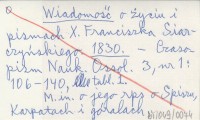 Wiadomość o życiu i
pismach X. Franciszka Siar-
czyńskiego. 1830. – Czaso-
pism Nauk. Ossol. 3, nr 1:
106-140, tabl. 1.
M.in. o jego rps o Spiszu,
Karpatach i góralach